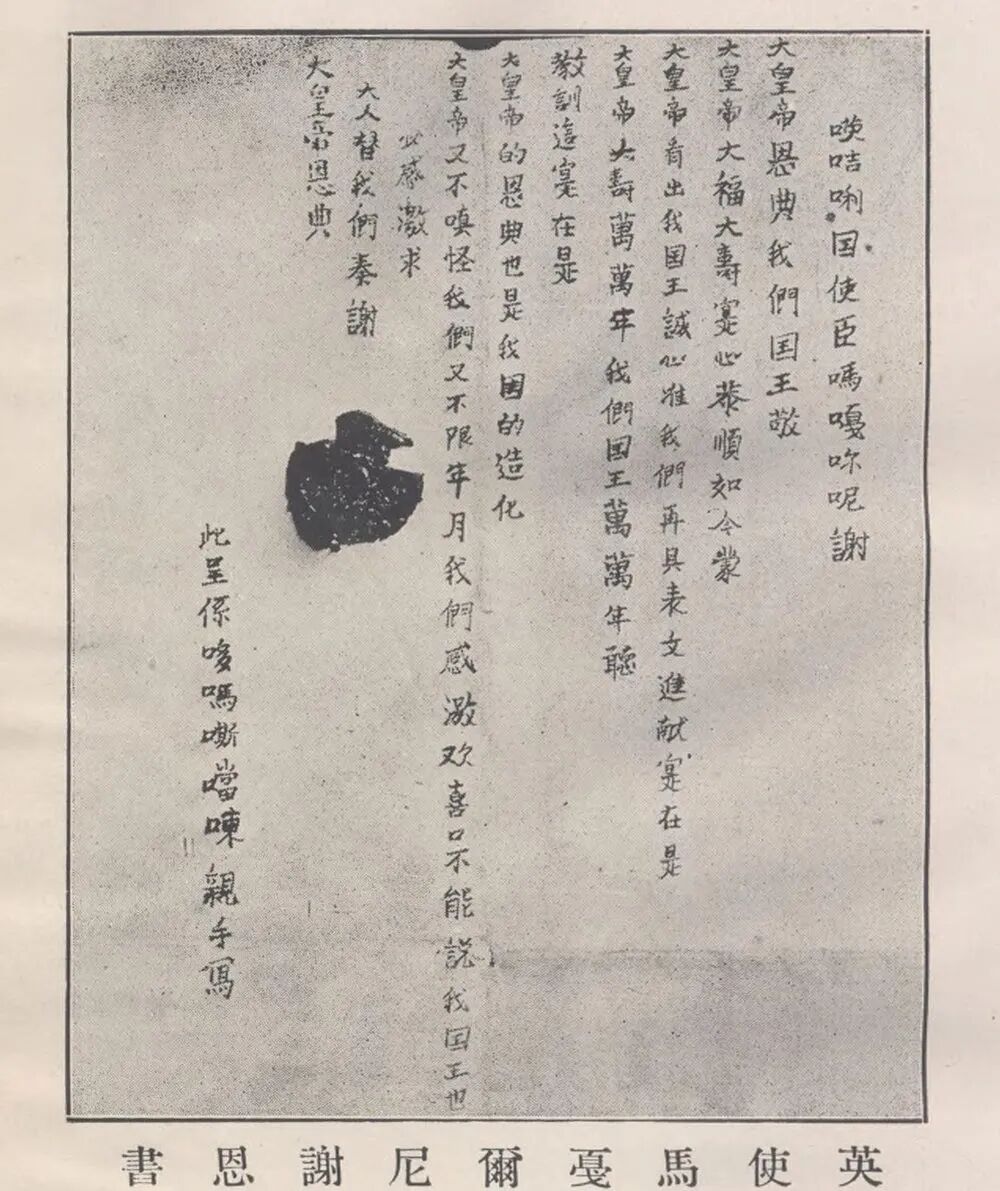 㗲咭唎国使臣嗎嘎㖿呢謝
大皇帝恩典我們国王敬
大皇帝大福大壽寔心恭順如今蒙
大皇帝看出我国王誠心准我們再具表文進献寔在是
大皇帝大壽萬萬年我們国王萬萬年聽
教訓這寔在是
大皇帝的恩典也是我国的造化
大皇帝又不嗔怪我們又不限年月我們感激欢喜口不能説我国王也
必感激求
大人替我們奏謝
大皇帝恩典
此呈係哆嗎嘶噹㖦親手寫
英使馬戛爾尼謝恩書